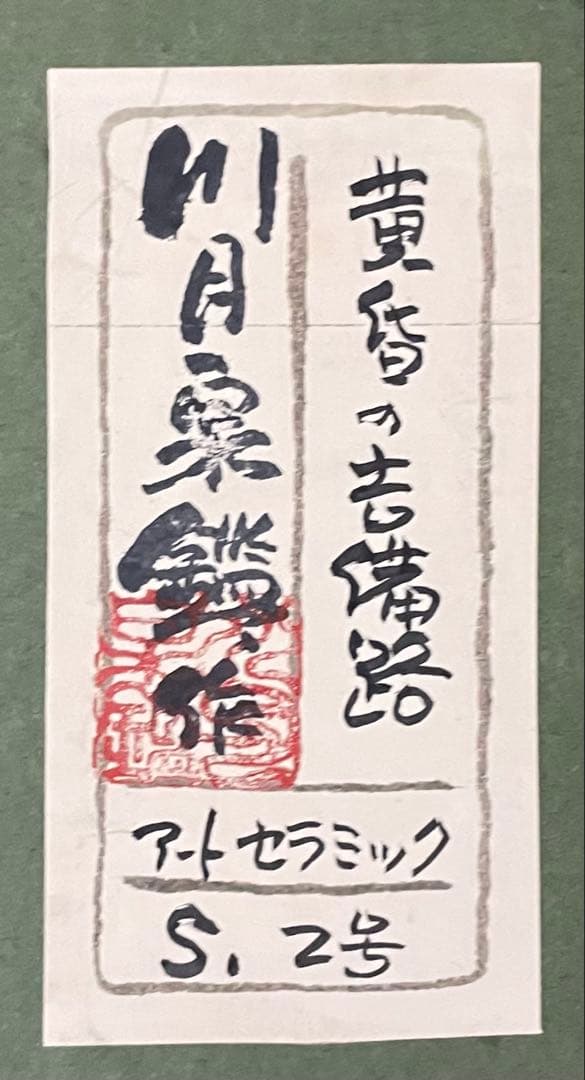 黄昏の吉備路
川月栗鐠作
アートセラミック
S. 2号